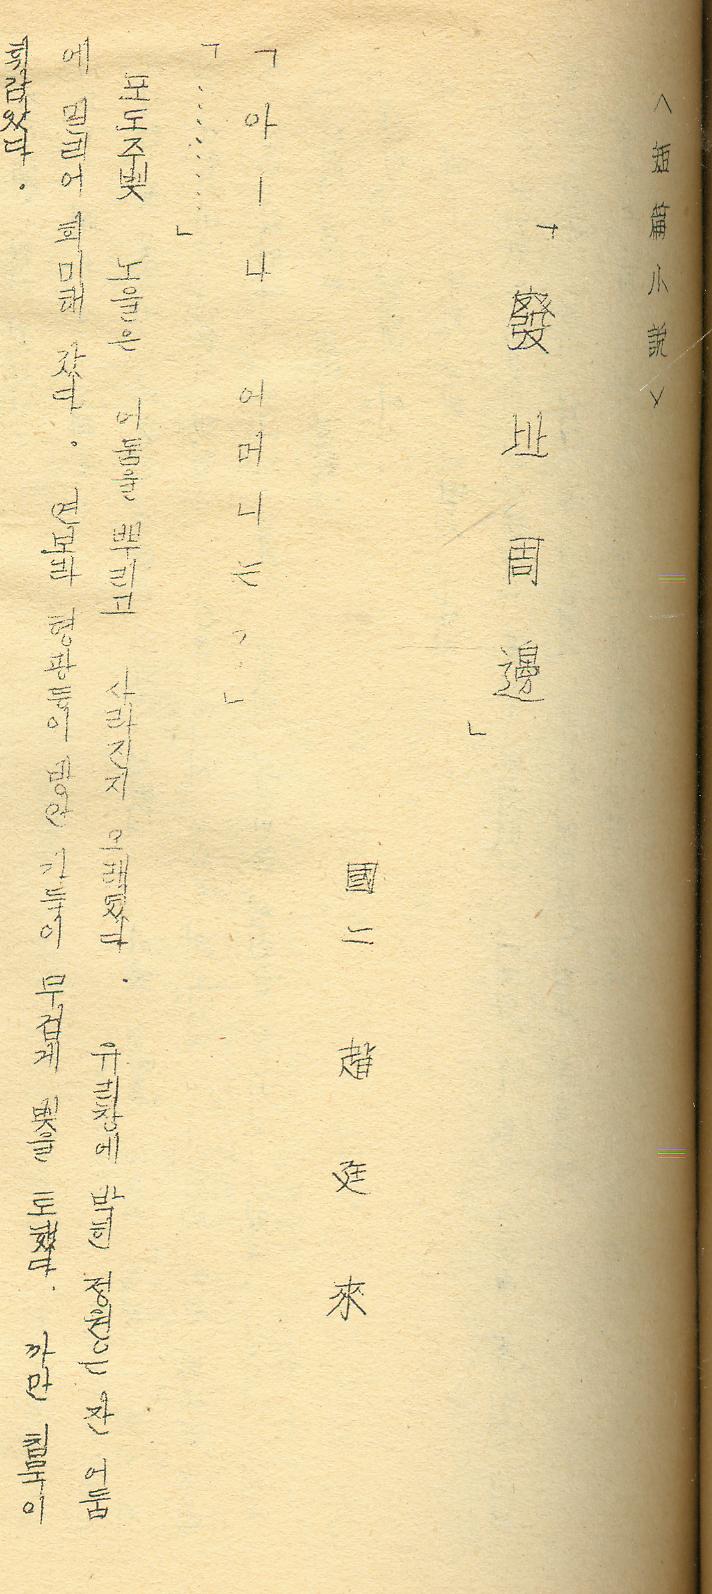 <短篇小說>
「發址周邊」
國二 趙廷來
「아ー나 어머니는?」
「………」
포도주빛 노을은 어둠을 뿌리고 사라진지 오래됐다. 유리창에 박힌 정원은 잔 어둠
에 밀리어 희미해 갔다. 연보라 형광등이 방안 가득이 무겁게 빛을 토했다. 까만 침묵이
휘감았다.